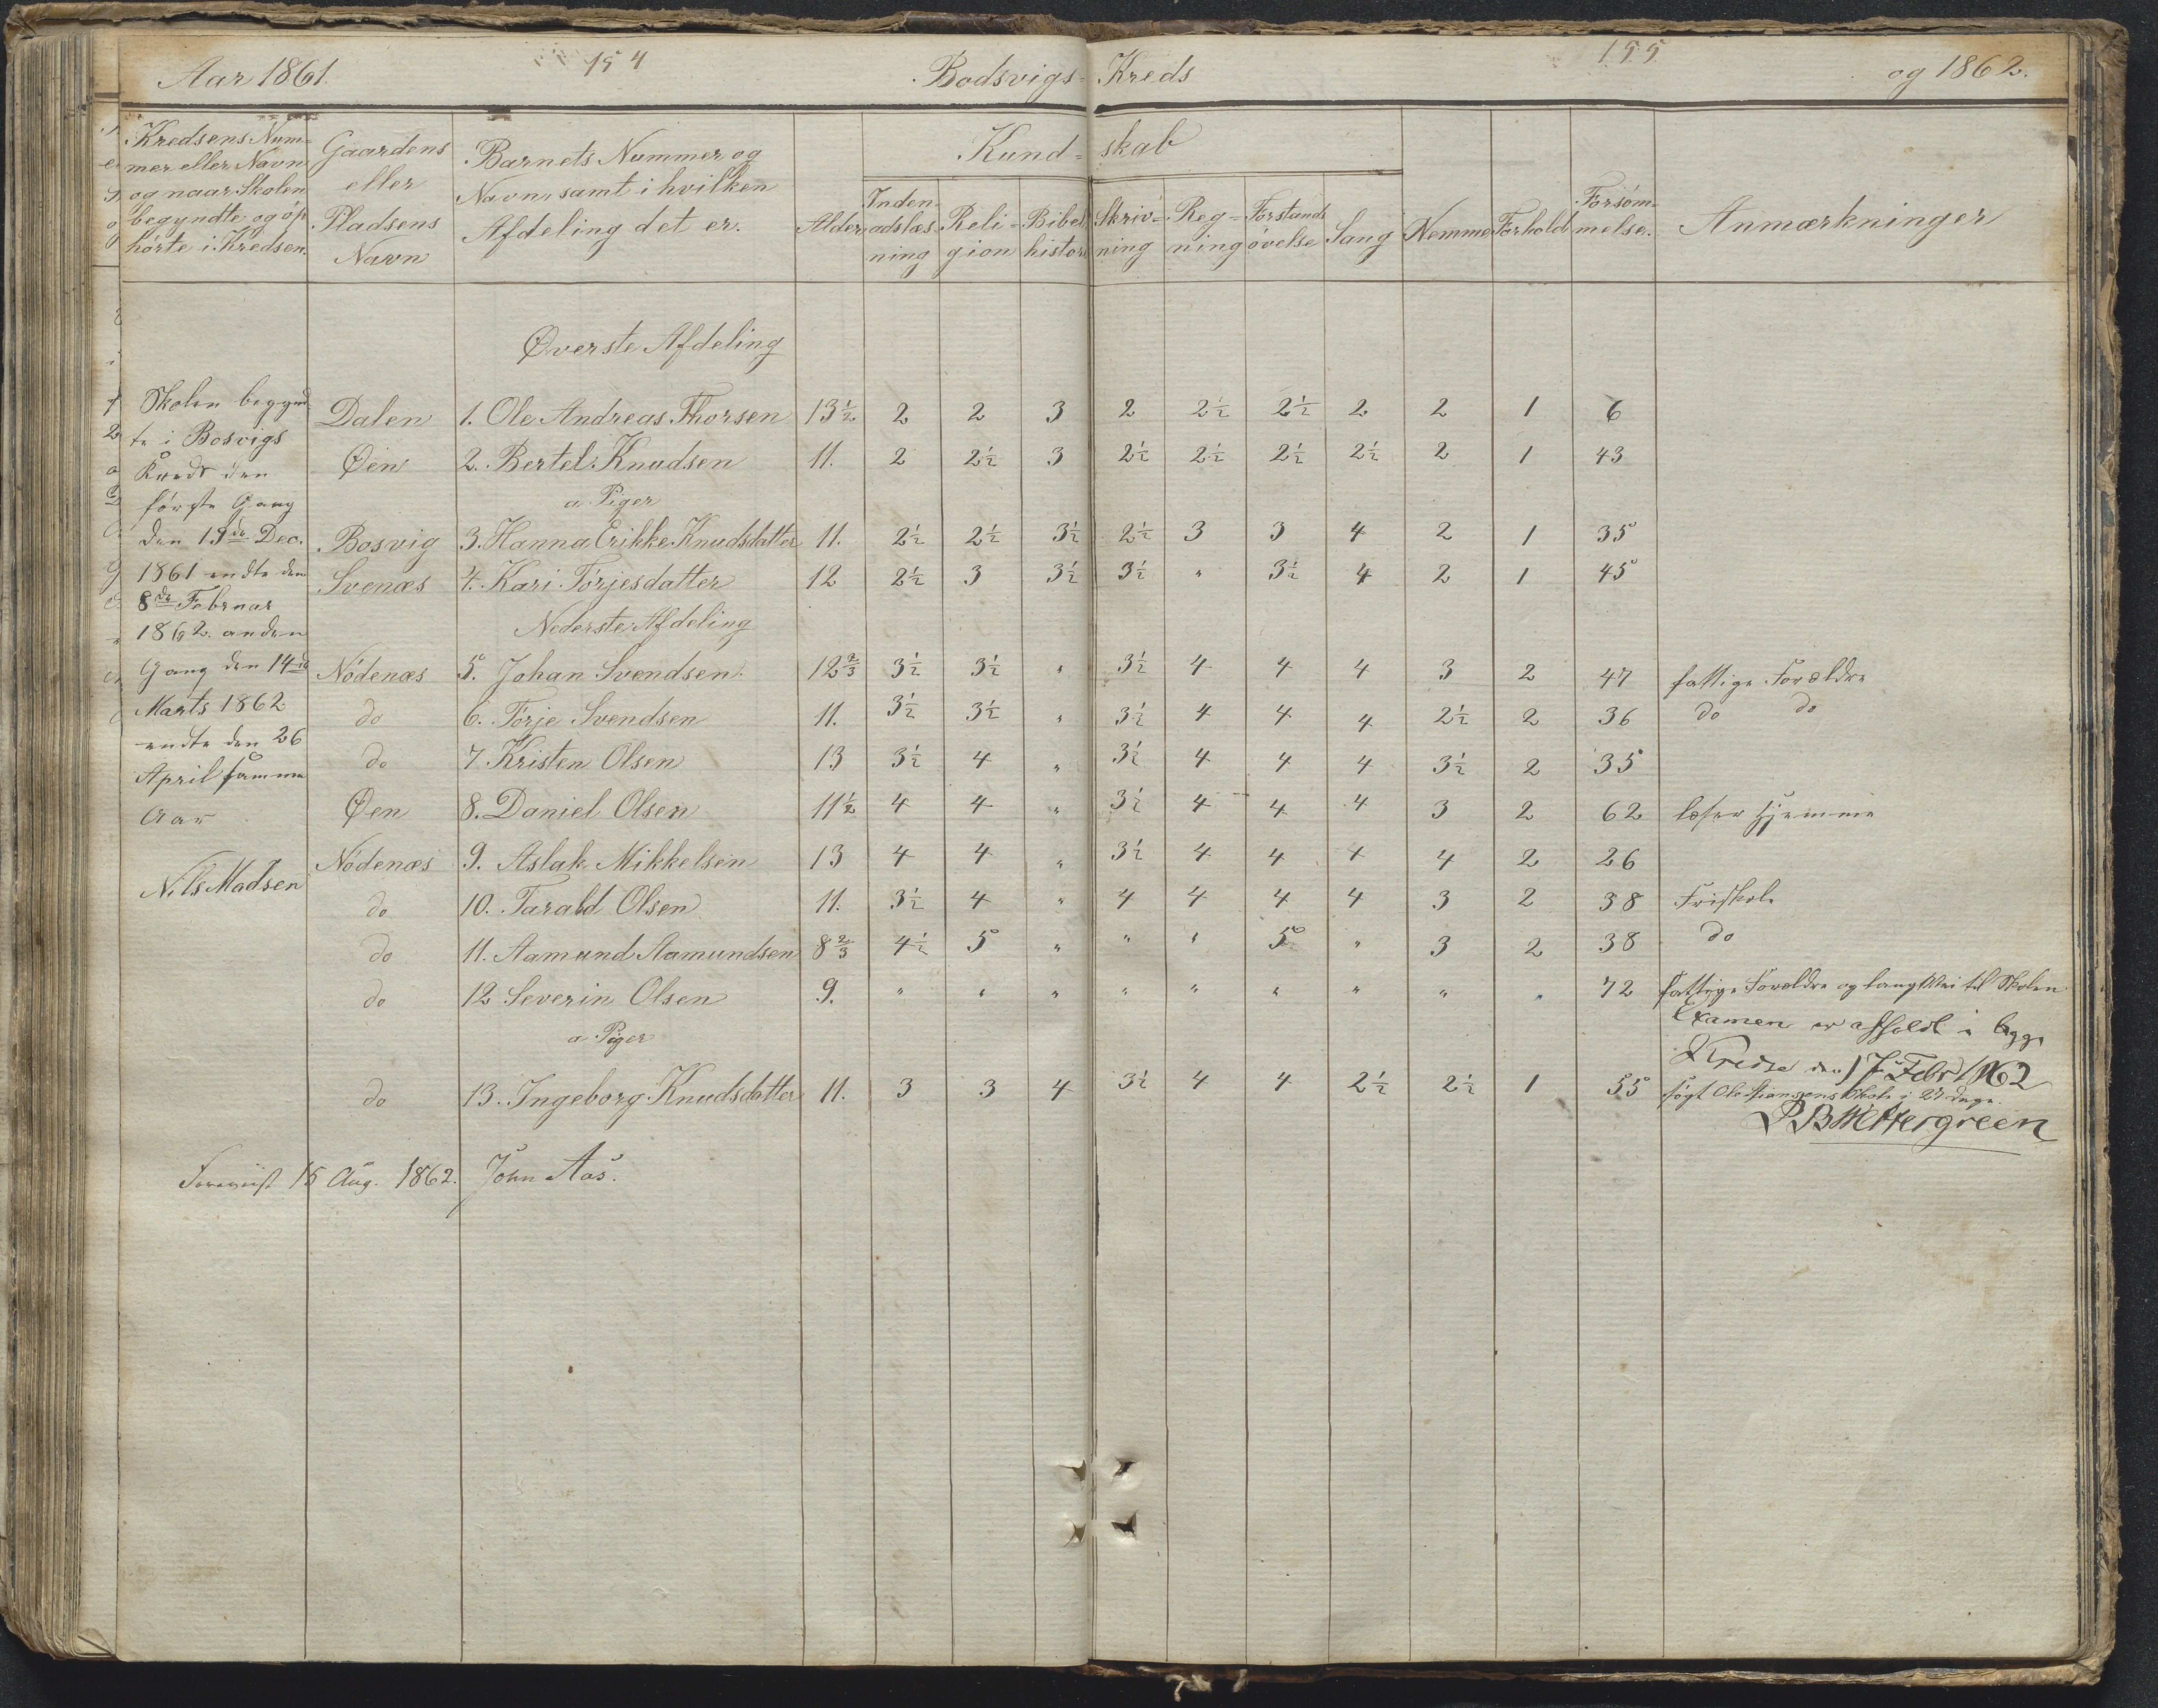 Aar 1861. 154 Bodsvigs- Kreds 155 og 1862.
Kredsens Num-
mer eller Navn
og naar Skolen
begyndte og op-
hørte i Kredsen.
Gaardens
eller
Pladsens
Navn
Barnets Nummer og
Navn, samt i hvilken
Afdeling det er.
Alder
Kund- skab
Inden-
adslæs-
ning
Reli-
gion
Bibel
histori
Skriv-
ning
Reg-
ning
Forstands
øvelse
Sang
Nemme
Forhold
Forsøm-
melse.
Anmærkninger
Øverste Afdeling
Skolen begynd-
te i Bosvigs
Kreds den
første Gang
den 19de Dec.
1861 endte den
8de Februar
1862. anden
Gang den 14de
Marts 1862
endte den 26
April samme
Aar
Nils Madsen
Dalen 1. Ole Andreas Thorsen 13½ 2 2 3 2 2½ 2½ 2 2 1 6
Øen 2. Bertel Knudsen 11. 2 2½ 3 2½ 2½ 2½ 2½ 2 1 43
a Piger
Bosvig 3. Hanna Erikke Knudsdatter 11. 2½ 2½ 3½ 2½ 3 3 4 2 1 35
Svenæs 4. Kari Tørjesdatter 12 2½ 3 3½ 3½ " 3½ 4 2 1 45
Nederste Afdeling
Nødenæs 5. Johan Svendsen 12⅔ 3½ 3½ " 3½ 4 4 4 3 2 47 fattige Forældre
do 6. Tørje Svendsen 11. 3½ 3½ " 3½ 4 4 4 2½ 2 36 do do
do 7 Kristen Olsen 13 3½ 4 " 3½ 4 4 4 3½ 2 35
Øen 8. Daniel Olsen 11½ 4 4 " 3½ 4 4 4 3 2 62 læser Hjemme
Nødenæs 9. Aslak Mikkelsen 13 4 4 " 3½ 4 4 4 4 2 26
do 10. Tarald Olsen 11. 3½ 4 " 4 4 4 4 3 2 38 Friskole
do 11. Aamund Aamundsen 8⅔ 4½ 5 " " " 5 " 3 2 38 do
do 12 Severin Olsen 9. " " " " " " " " " 72 fattige Forældre og lang Vei til Skolen
a Piger
Examen er afholdt i begge
Kredse den 17 Febr 1862
do 13. Ingeborg Knudsdatter 11. 3 3 4 3½ 4 4 2½ 2½ 1 55 søgt Ole Hansens Skole i 27 Dage.
P B Wettergreen
Foreviist 15 Aug. 1862. John Aas.